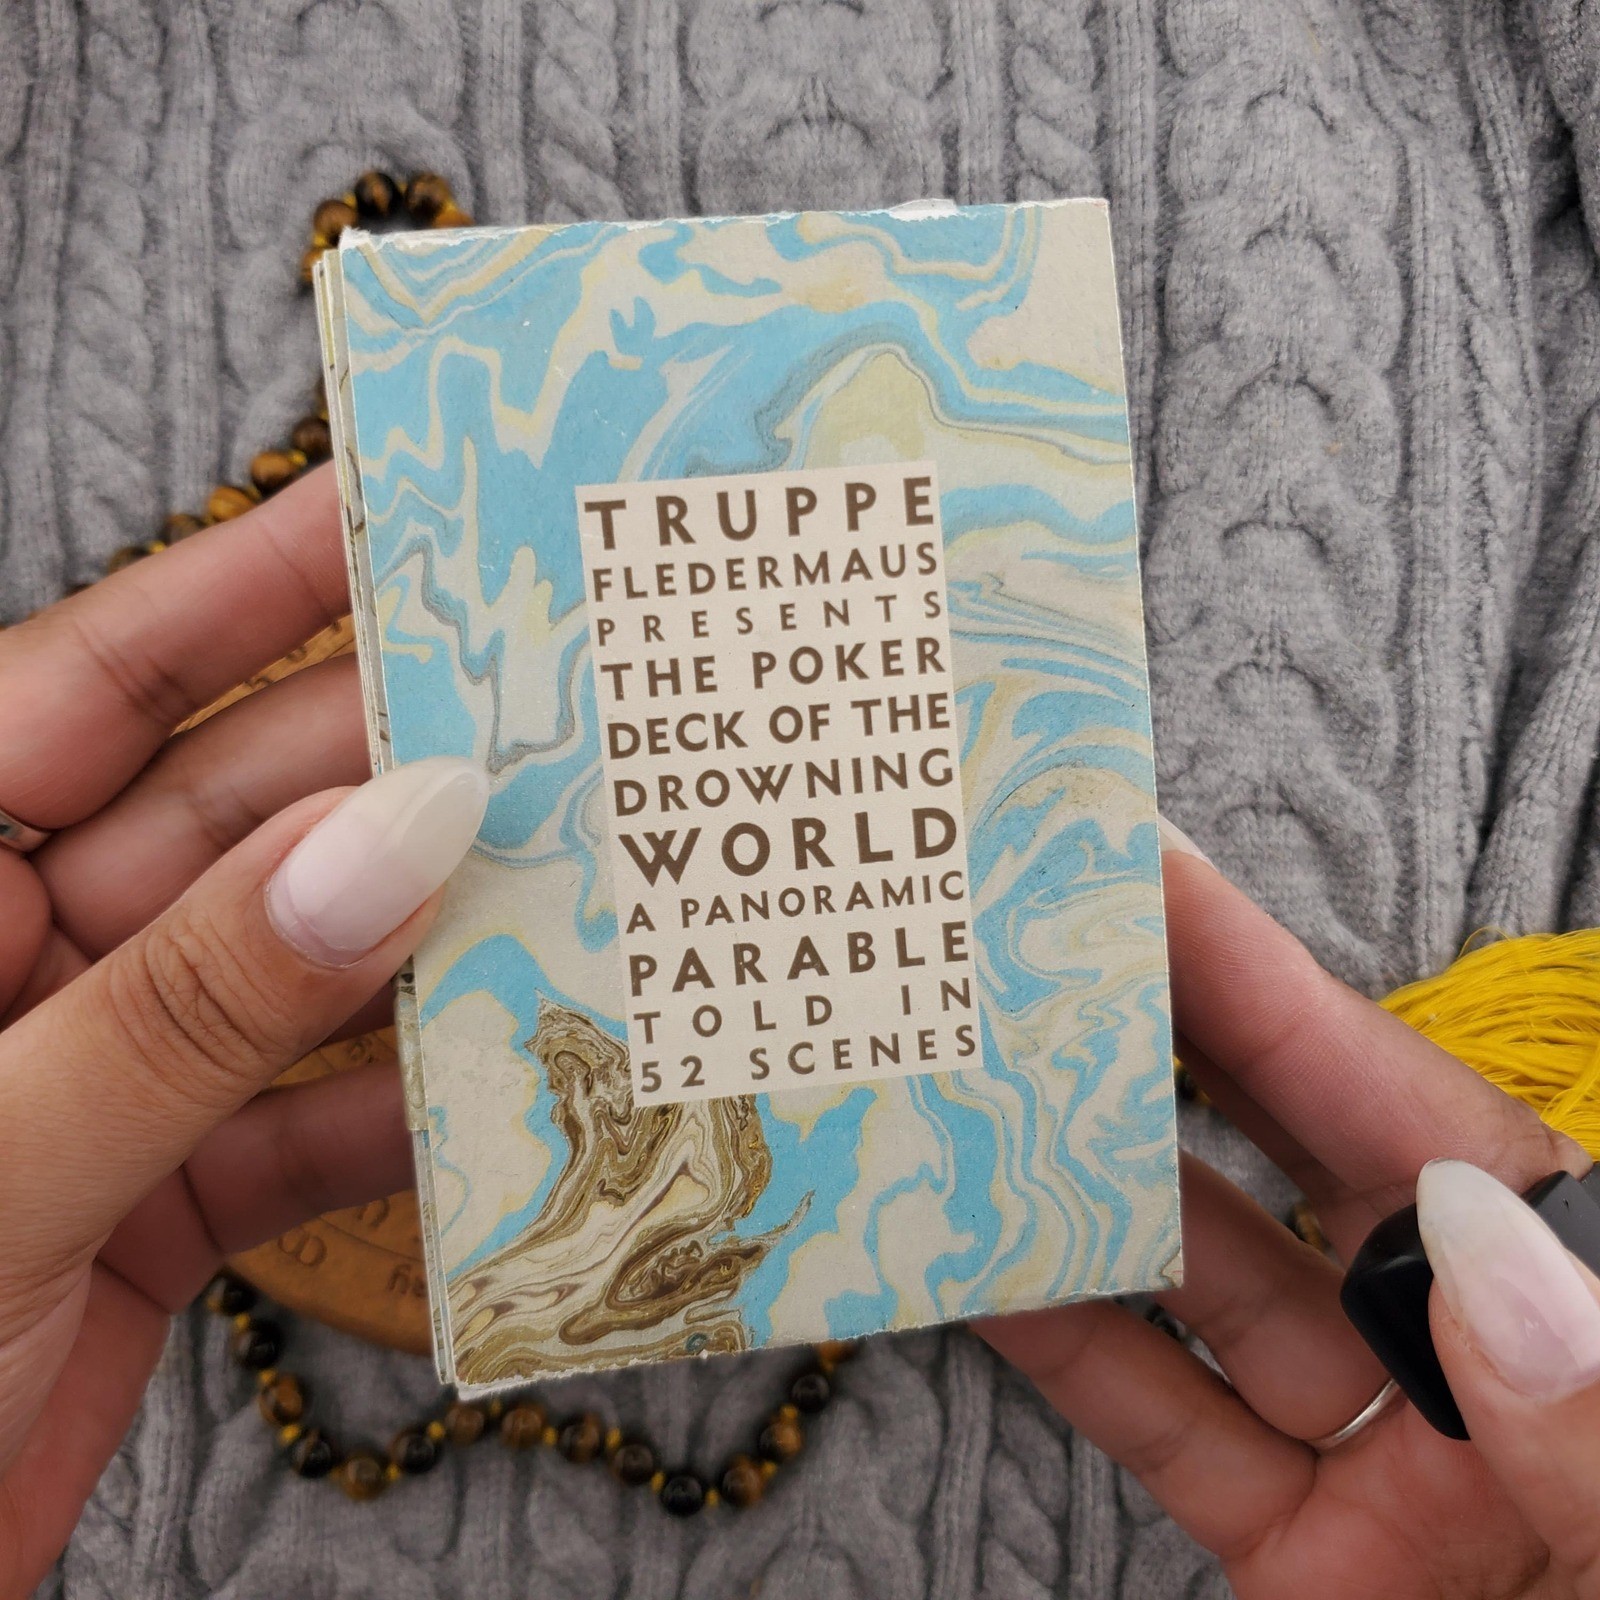 TRUPPE
FLEDERMAUS
PRESENTS
THE POKER
DECK OF THE
DROWNING
WORLD
A PANORAMIC
PARABLE
TOLD IN
52 SCENES